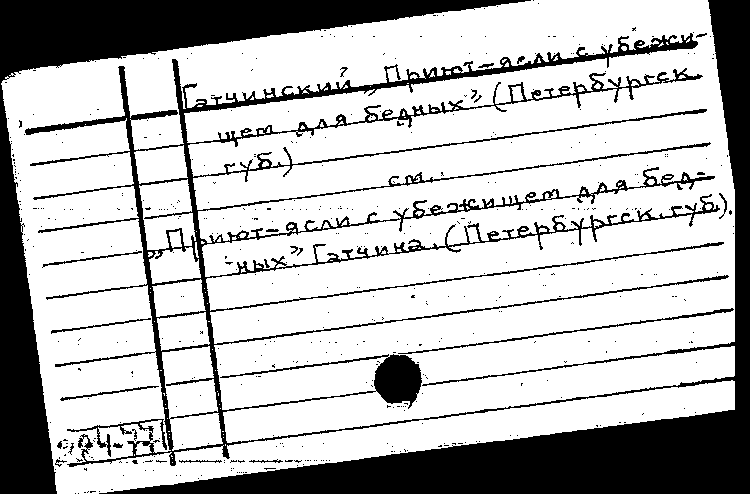 Гатчинский „Приют-ясли с убежи-
щем для бедных” (Петербургск.
губ.)
см.
„Приют-ясли с убежищем для бед-
ных”. Гатчина. (Петербургск. губ.).